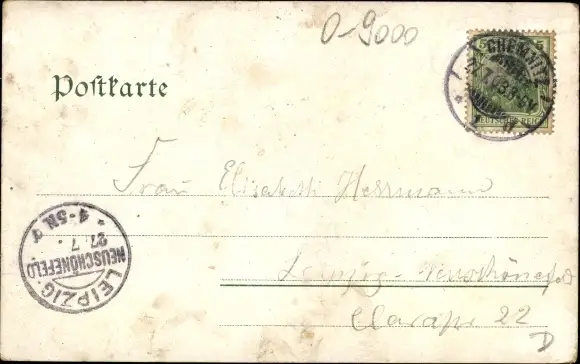 O-9000
Postkarte
5 5
DEUTSCHES REICH
CHEMNITZ
Frau Elisabeth Herrmann
Leipzig-Neuschönefeld
Clarastr 22
D
LEIPZIG-
NEUSCHÖNEFELD
27. 7.
4-5N